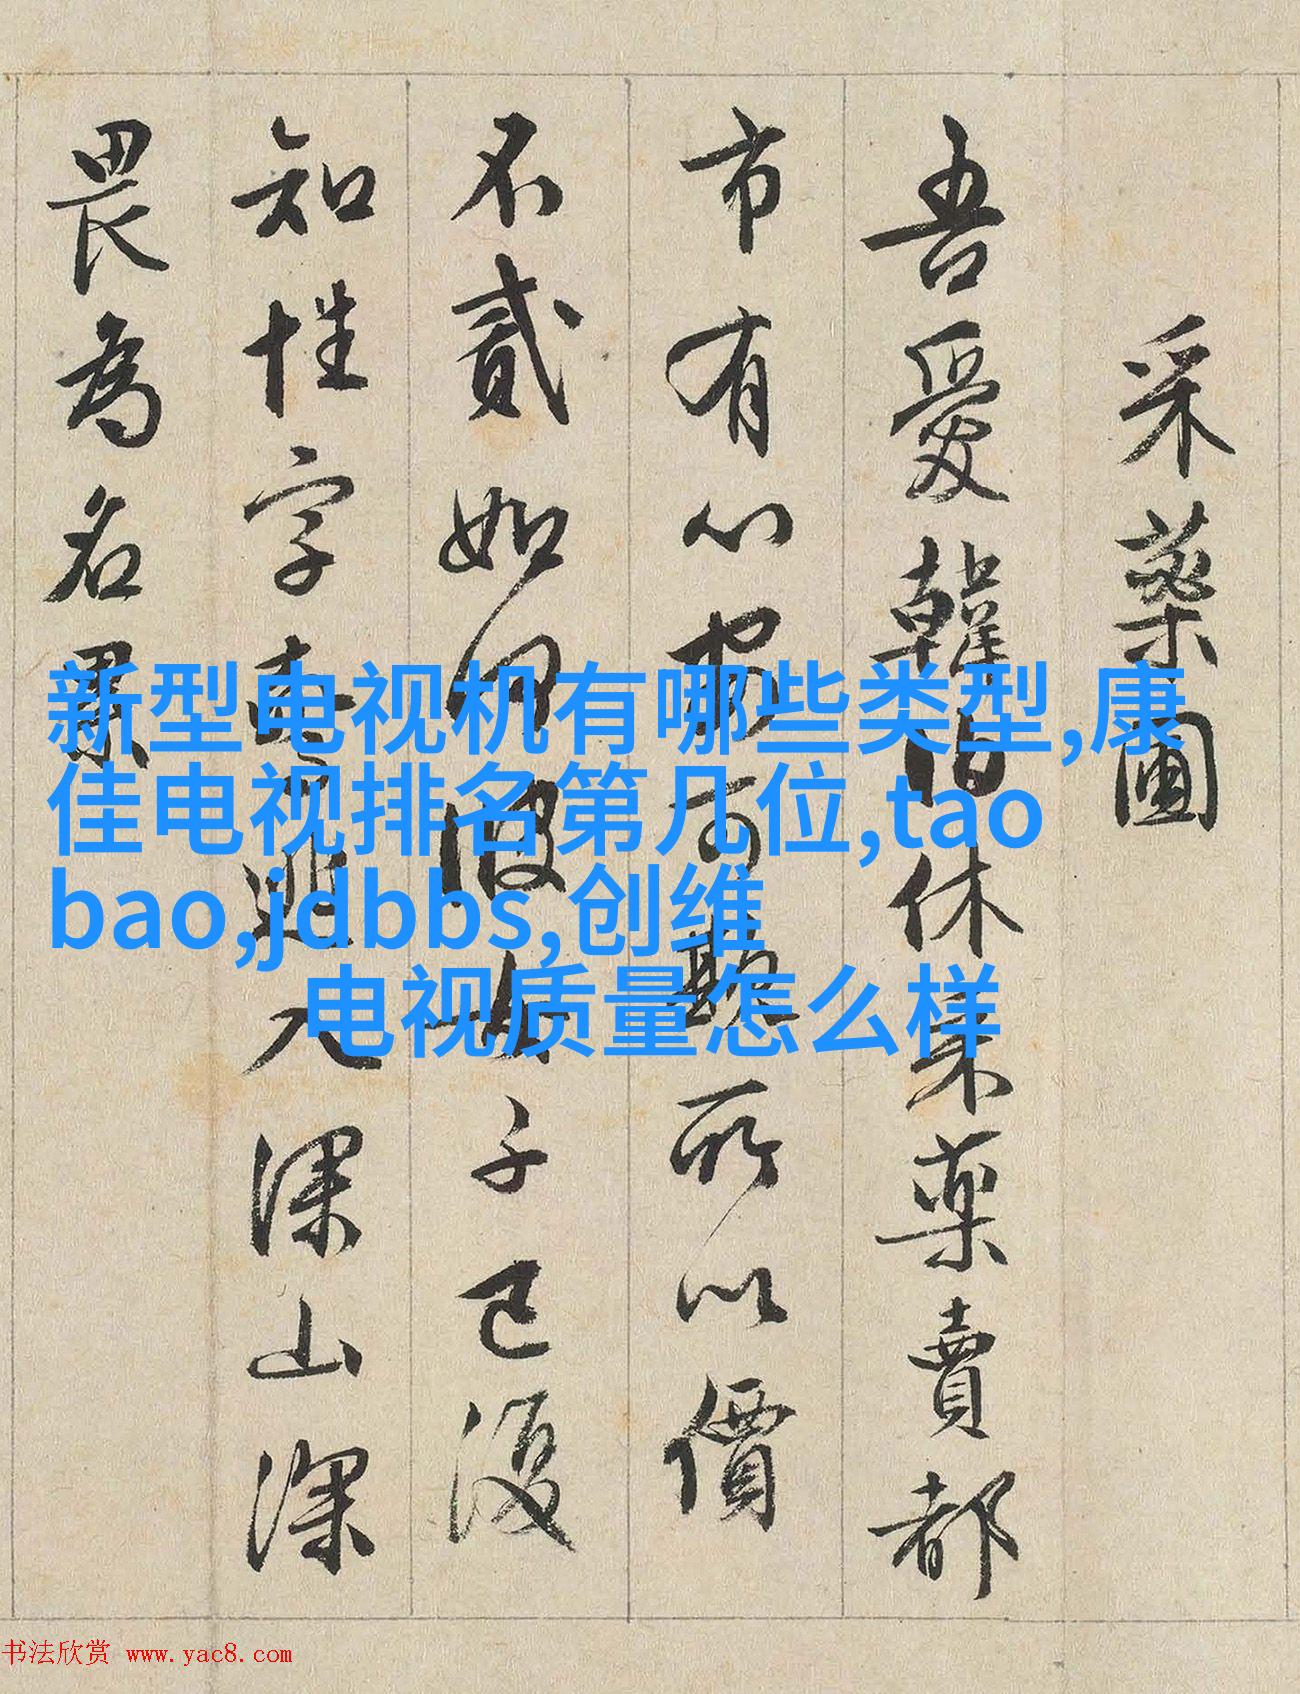 采藥圃
吾愛韓伯休采藥賣都
市有心安可欺所以價
不貳如何彼女子已復
知姓字驚逃入深山深
畏為名累
新型电视机有哪些类型,康
佳电视排名第几位,tao
bao,jdbbs,创维
电视质量怎么样
书法欣赏 www.yac8.com